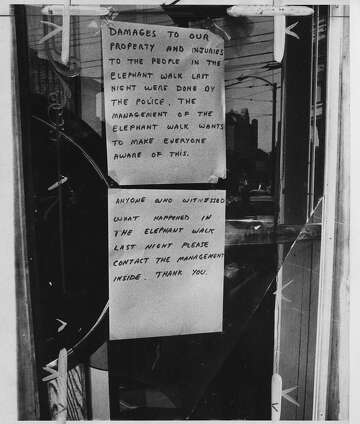 DAMAGES TO OUR
PROPERTY AND INJURIES
TO THE PEOPLE IN THE
ELEPHANT WALK LAST
NIGHT WERE DONE BY
THE POLICE. THE
MANAGEMENT OF THE
ELEPHANT WALK WANTS
TO MAKE EVERYONE
AWARE OF THIS.
ANYONE WHO WITNESSED
WHAT HAPPENED IN
THE ELEPHANT WALK
LAST NIGHT PLEASE
CONTACT THE MANAGEMENT
INSIDE. THANK YOU.